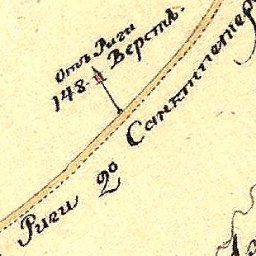 Отъ Риги
148 Верстъ.
Риги 2º Санктпетер